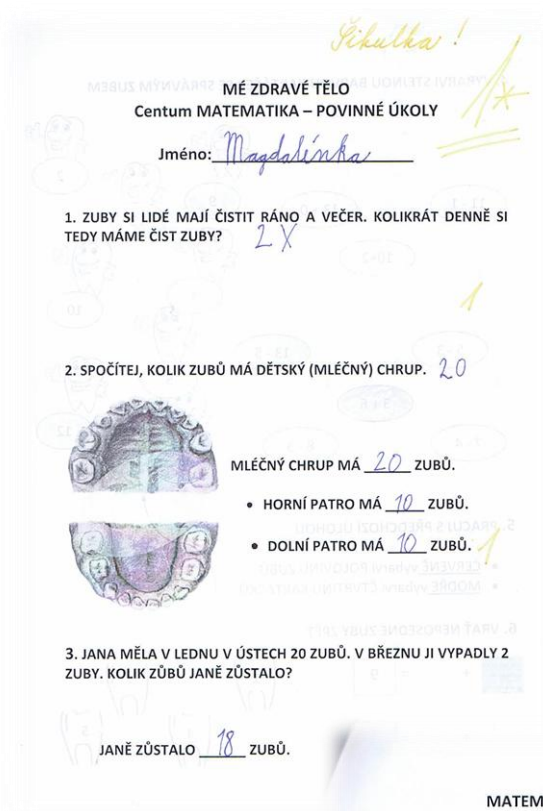 Šikulka !
1*
MÉ ZDRAVÉ TĚLO
Centum MATEMATIKA – POVINNÉ ÚKOLY
Jméno: Magdalénka
1. ZUBY SI LIDÉ MAJÍ ČISTIT RÁNO A VEČER. KOLIKRÁT DENNĚ SI
TEDY MÁME ČIST ZUBY? 2X
1
2. SPOČÍTEJ, KOLIK ZUBŮ MÁ DĚTSKÝ (MLÉČNÝ) CHRUP. 20
MLÉČNÝ CHRUP MÁ 20 ZUBŮ.
• HORNÍ PATRO MÁ 10 ZUBŮ.
• DOLNÍ PATRO MÁ 10 ZUBŮ. 1
3. JANA MĚLA V LEDNU V ÚSTECH 20 ZUBŮ. V BŘEZNU JI VYPADLY 2
ZUBY. KOLIK ZŮBŮ JANĚ ZŮSTALO?
JANĚ ZŮSTALO 18 ZUBŮ.
MATEM